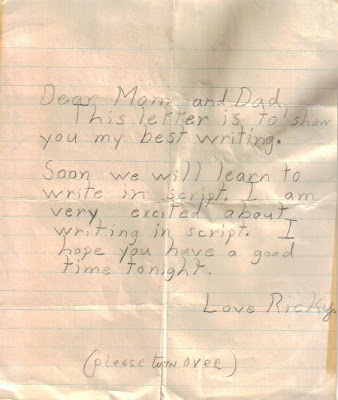 Dear Mom and Dad,
This letter is to show
you my best writing.
Soon we will learn to
write in script. I am
very excited about
writing in script. I
hope you have a good
time tonight.
Love Ricky.
(PLEASE TURN OVER)